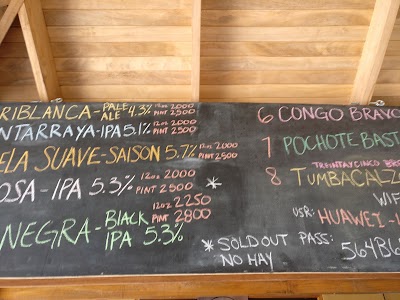 RIBLANCA-PALE ALE 4.3% 12oz 2000 PINT 2500
NTARRAYA-IPA 5.1% 12oz 2000 PINT 2500
ELA SUAVE-SAISON 5.7% 12oz 2000 PINT 2500
OSA-IPA 5.3% 12oz 2000 PINT 2500 *
NEGRA-BLACK IPA 5.3% 12oz 2250 PINT 2800
* SOLD OUT
NO HAY
6 CONGO BRAVO
7 POCHOTE BAST
TREINTAYCINCO
8 TUMBACALZ
WIF
USR: HUAWEI-
PASS: 564B6